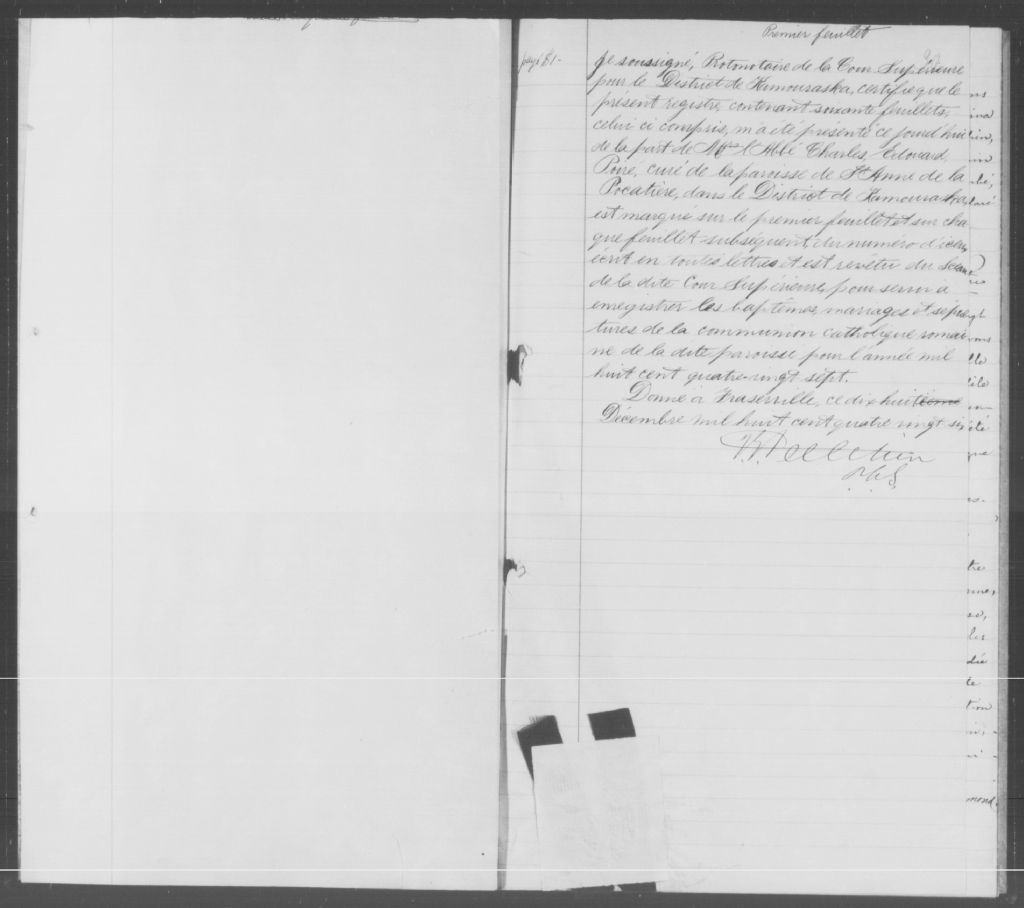 Premier feuillet
page 81.
Je soussigné, Protonotaire de la Cour Supérieure
pour le District de Kamouraska, certifie que le
présent registre, contenant soixante feuillets,
celui ci compris, m'a été présenté ce jourd'hui
de la part de Mr l'Abbé Charles Edouard
Poiré, curé de la paroisse de Ste Anne de la
Pocatière, dans le District de Kamouraska,
est marqué sur le premier feuillet et sur cha
que feuillet subséquent du numéro d'icelui
écrit en toutes lettres et est revêtu du Sceau
de la dite Cour Supérieure, pour servir a
enregistrer les baptêmes, mariages et sépul
tures de la communion catholique romai
ne de la dite paroisse pour l'année mil
huit cent quatre-vingt sept.
Donné à Fraserville, ce dix huitième
Décembre mil huit cent quatre vingt six
Pelletier
P.C.S.